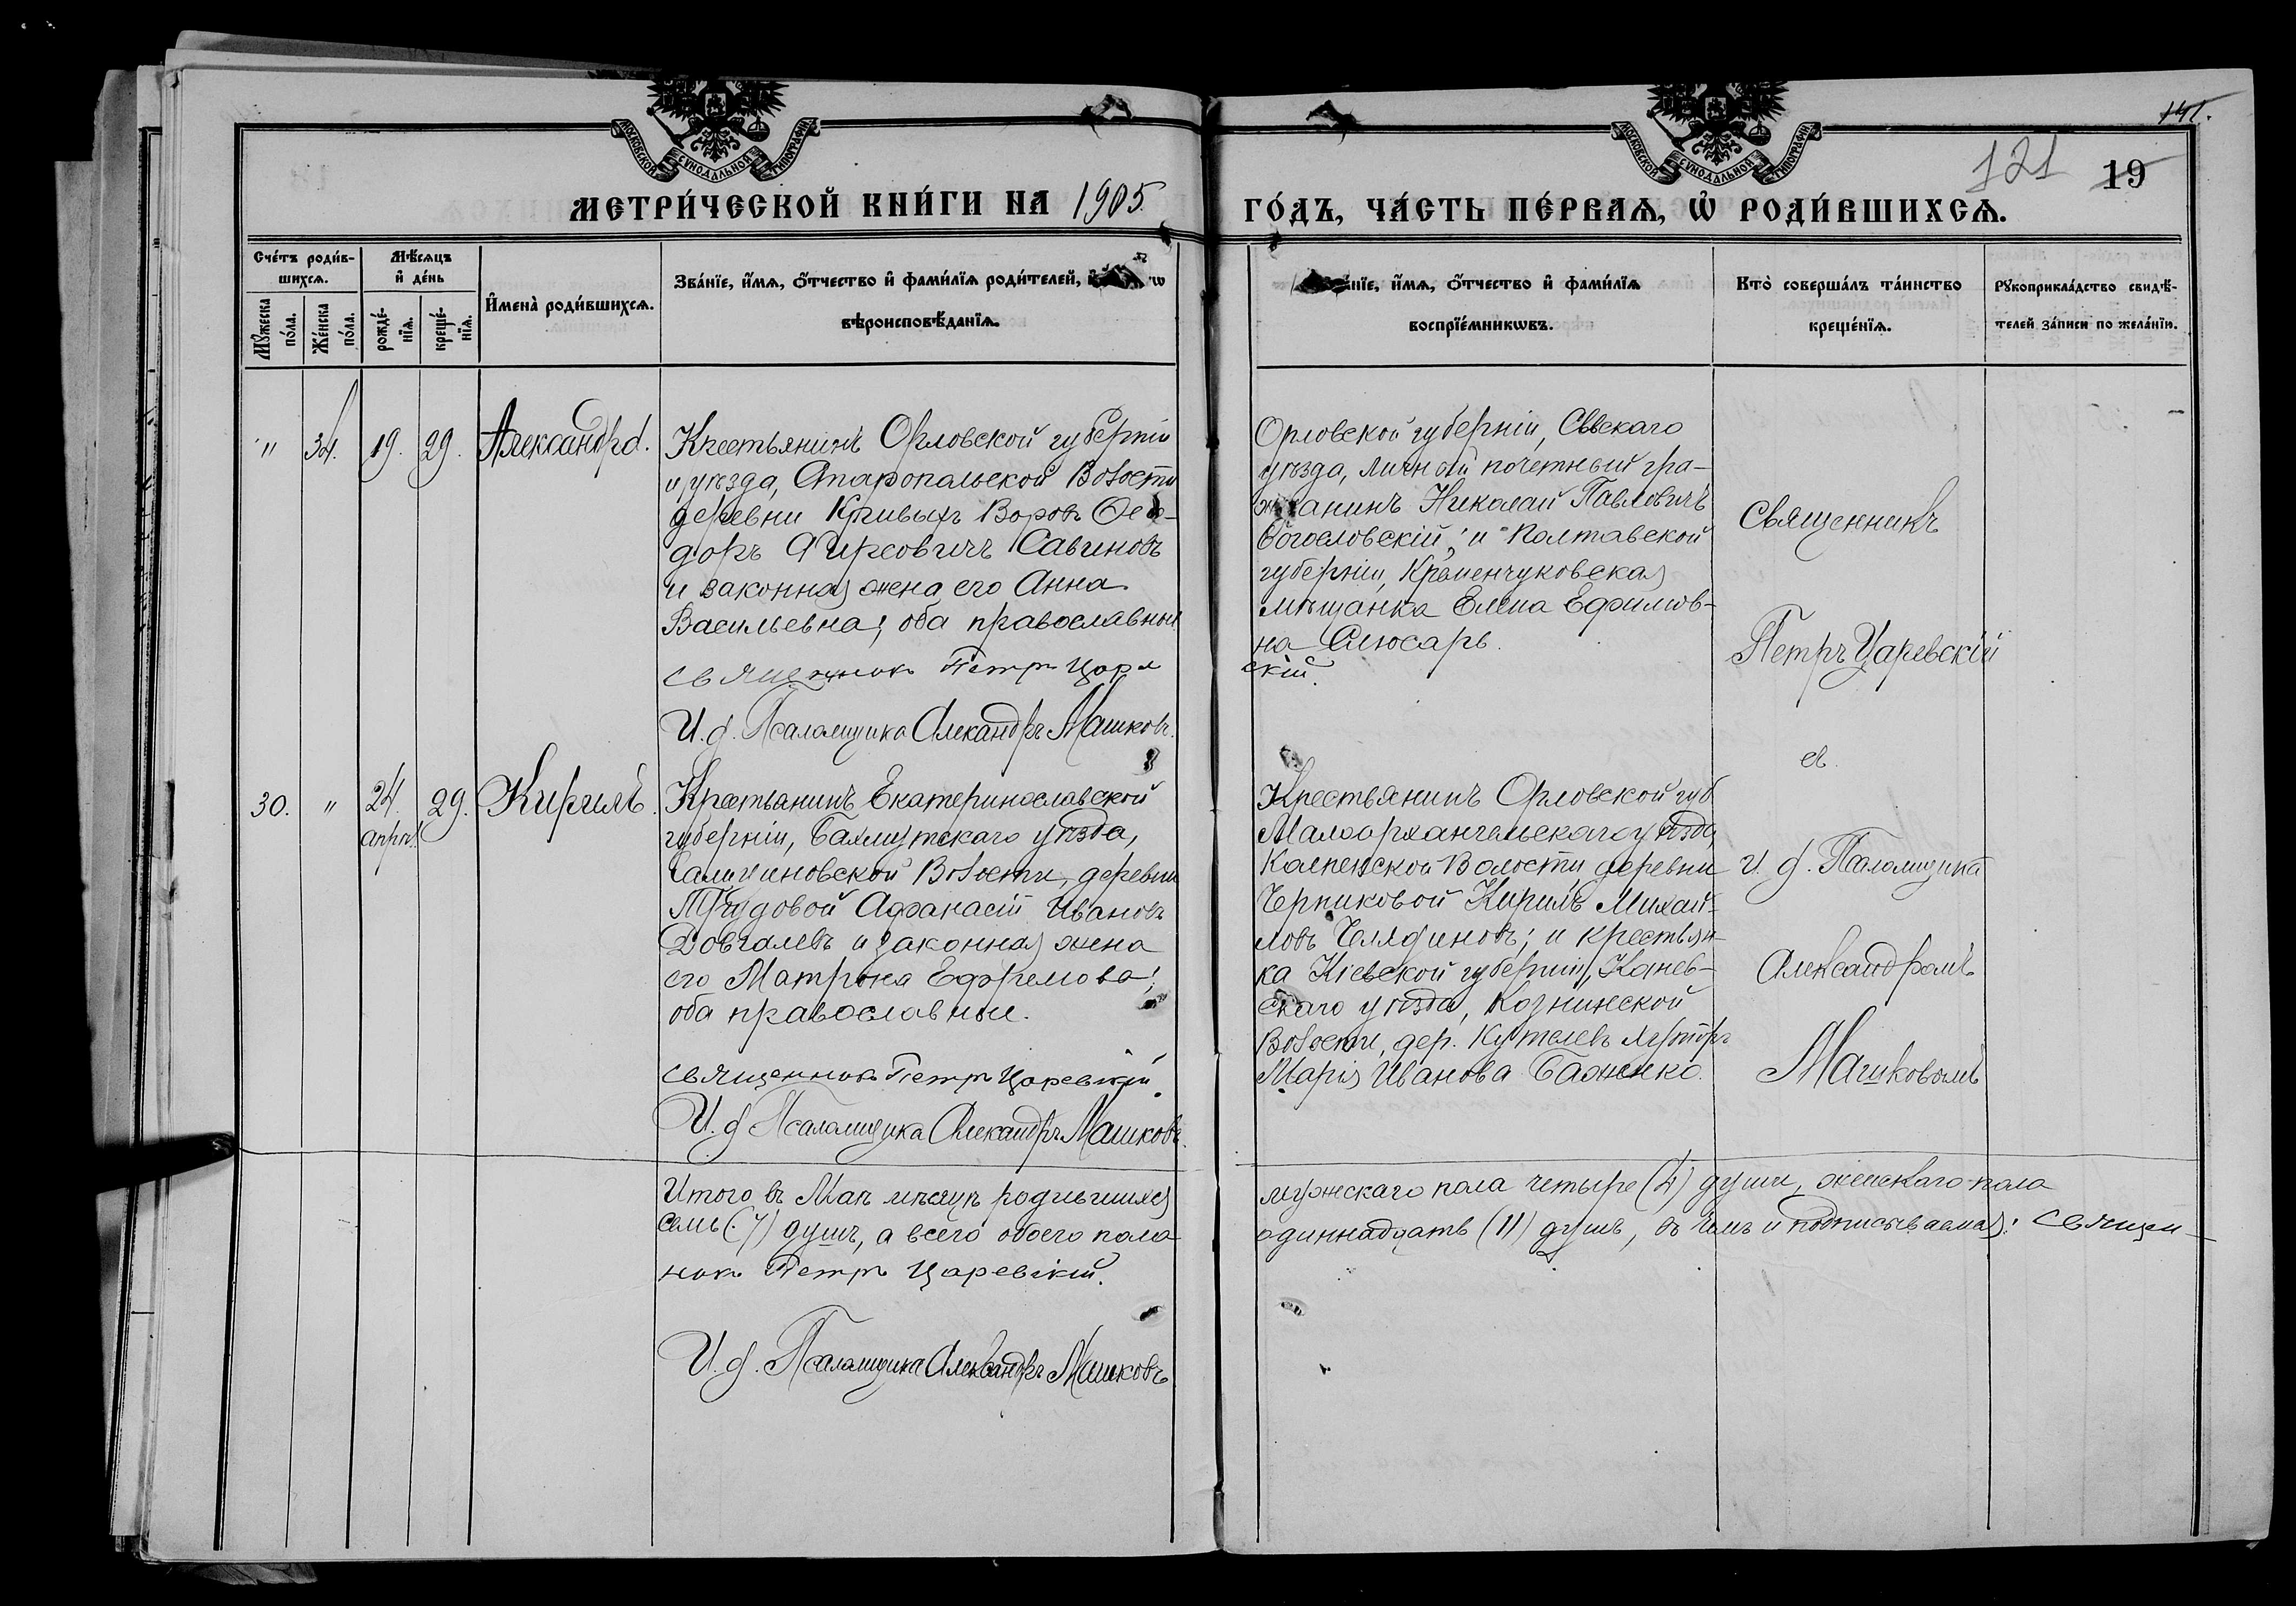 141.
121
19
МОСКОВСКОЙ СѴНОДАЛЬНОЙ ТИПОГРАФІИ
МОСКОВСКОЙ СѴНОДАЛЬНОЙ ТИПОГРАФІИ
МЕТРИ́ЧЕСКОЙ КНИ́ГИ НА 1905
ГО́ДЪ, ЧА́СТЬ ПЕ́РВАѦ, Ѽ РОДИ́ВШИХСѦ.
Сче́тъ роди́в-
шихсѧ.
Мꙋ́жеска по́ла.
Же́нска по́ла.
Мѣ́сѧцъ
и҆ де́нь
рожде́-
нїѧ.
креще́-
нїѧ.
И҆мена̀ роди́вшихсѧ.
Зва́нїе, и҆́мѧ, ѻ҆́тчество и҆ фами́лїѧ роди́телей,
вѣроисповѣ́данїѧ.
нїе, и҆́мѧ, ѻ҆́тчество и҆ фами́лїѧ
воспрїе́мникѡвъ.
Кто̀ соверша́лъ та́инство
креще́нїѧ.
Рꙋкоприкла́дство свидѣ́-
телей за́писи по жела́нїю.
" 34. 19. 29. Александра.
Крестьянинъ Орловской губерніи
и уѣзда, Старопальской Волости
деревни Кривыхъ Воровъ Ѳео-
доръ Фирсовичъ Савиновъ
и законная жена его Анна
Васильевна; оба православные
священник Петр Царев
скій.
И. д. Псаломщика Александръ Машковъ.
Орловской губерніи, Сѣвскаго
уѣзда, личный почетный гра-
жданинъ Николай Павловичъ
Богословскій; и Полтавской
губерніи, Кременчуковская
мѣщанка Елена Ефимов-
на Слюсарь.
Священникъ
Петръ Царевскій
съ
и. д. Псаломщика
Александромъ
Машковымъ
30. " 24 апрѣл. 29. Кирилъ.
Крестьянинъ Екатеринославской
губерніи, Бахмутскаго уѣзда,
Волости, деревни
Трудовой Афанасій Ивановъ
Довгалевъ и законная жена
его Матрона Ефремова;
оба православные.
Священник Петр Царевскій.
И. д. Псаломщика Александръ Машковъ.
Крестьянинъ Орловской губ.
Малоархангельскаго уѣзда,
Волости деревни
Черниковой Кирилъ Михай-
ловъ Челядиновъ; и крестьян-
ка Кіевской губерніи, Канев-
скаго уѣзда, Козинской
Волости, дер.
Марія Иванова Баженко.
Итого въ Маѣ мѣсяцѣ родившихся
семь (7) душъ, а всего обоего пола
мужескаго пола четыре (4) души, женскаго пола
одиннадцать (11) душъ, въ чемъ и подписываемся: Священ-
ник Петр Царевскій.
И. д. Псаломщика Александръ Машковъ